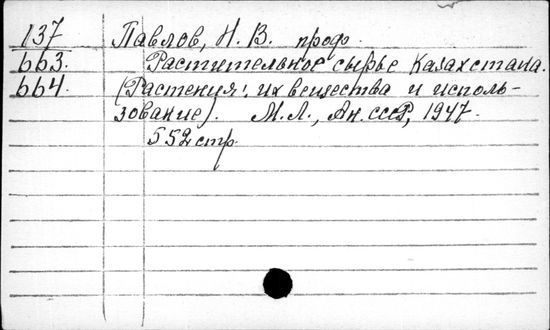 137 Павлов, Н. В. проф.
663. Растительное сырье Казахстана.
664. (Растения: их вещества и исполь-
зование). М.Л., Ан.СССР, 1947.
552 стр.